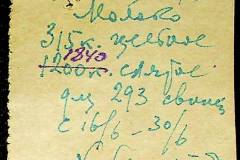 Молоко
315 к. цельное
1840
1200 к. снятое
для 293 свинец
с 16/6 – 30/6